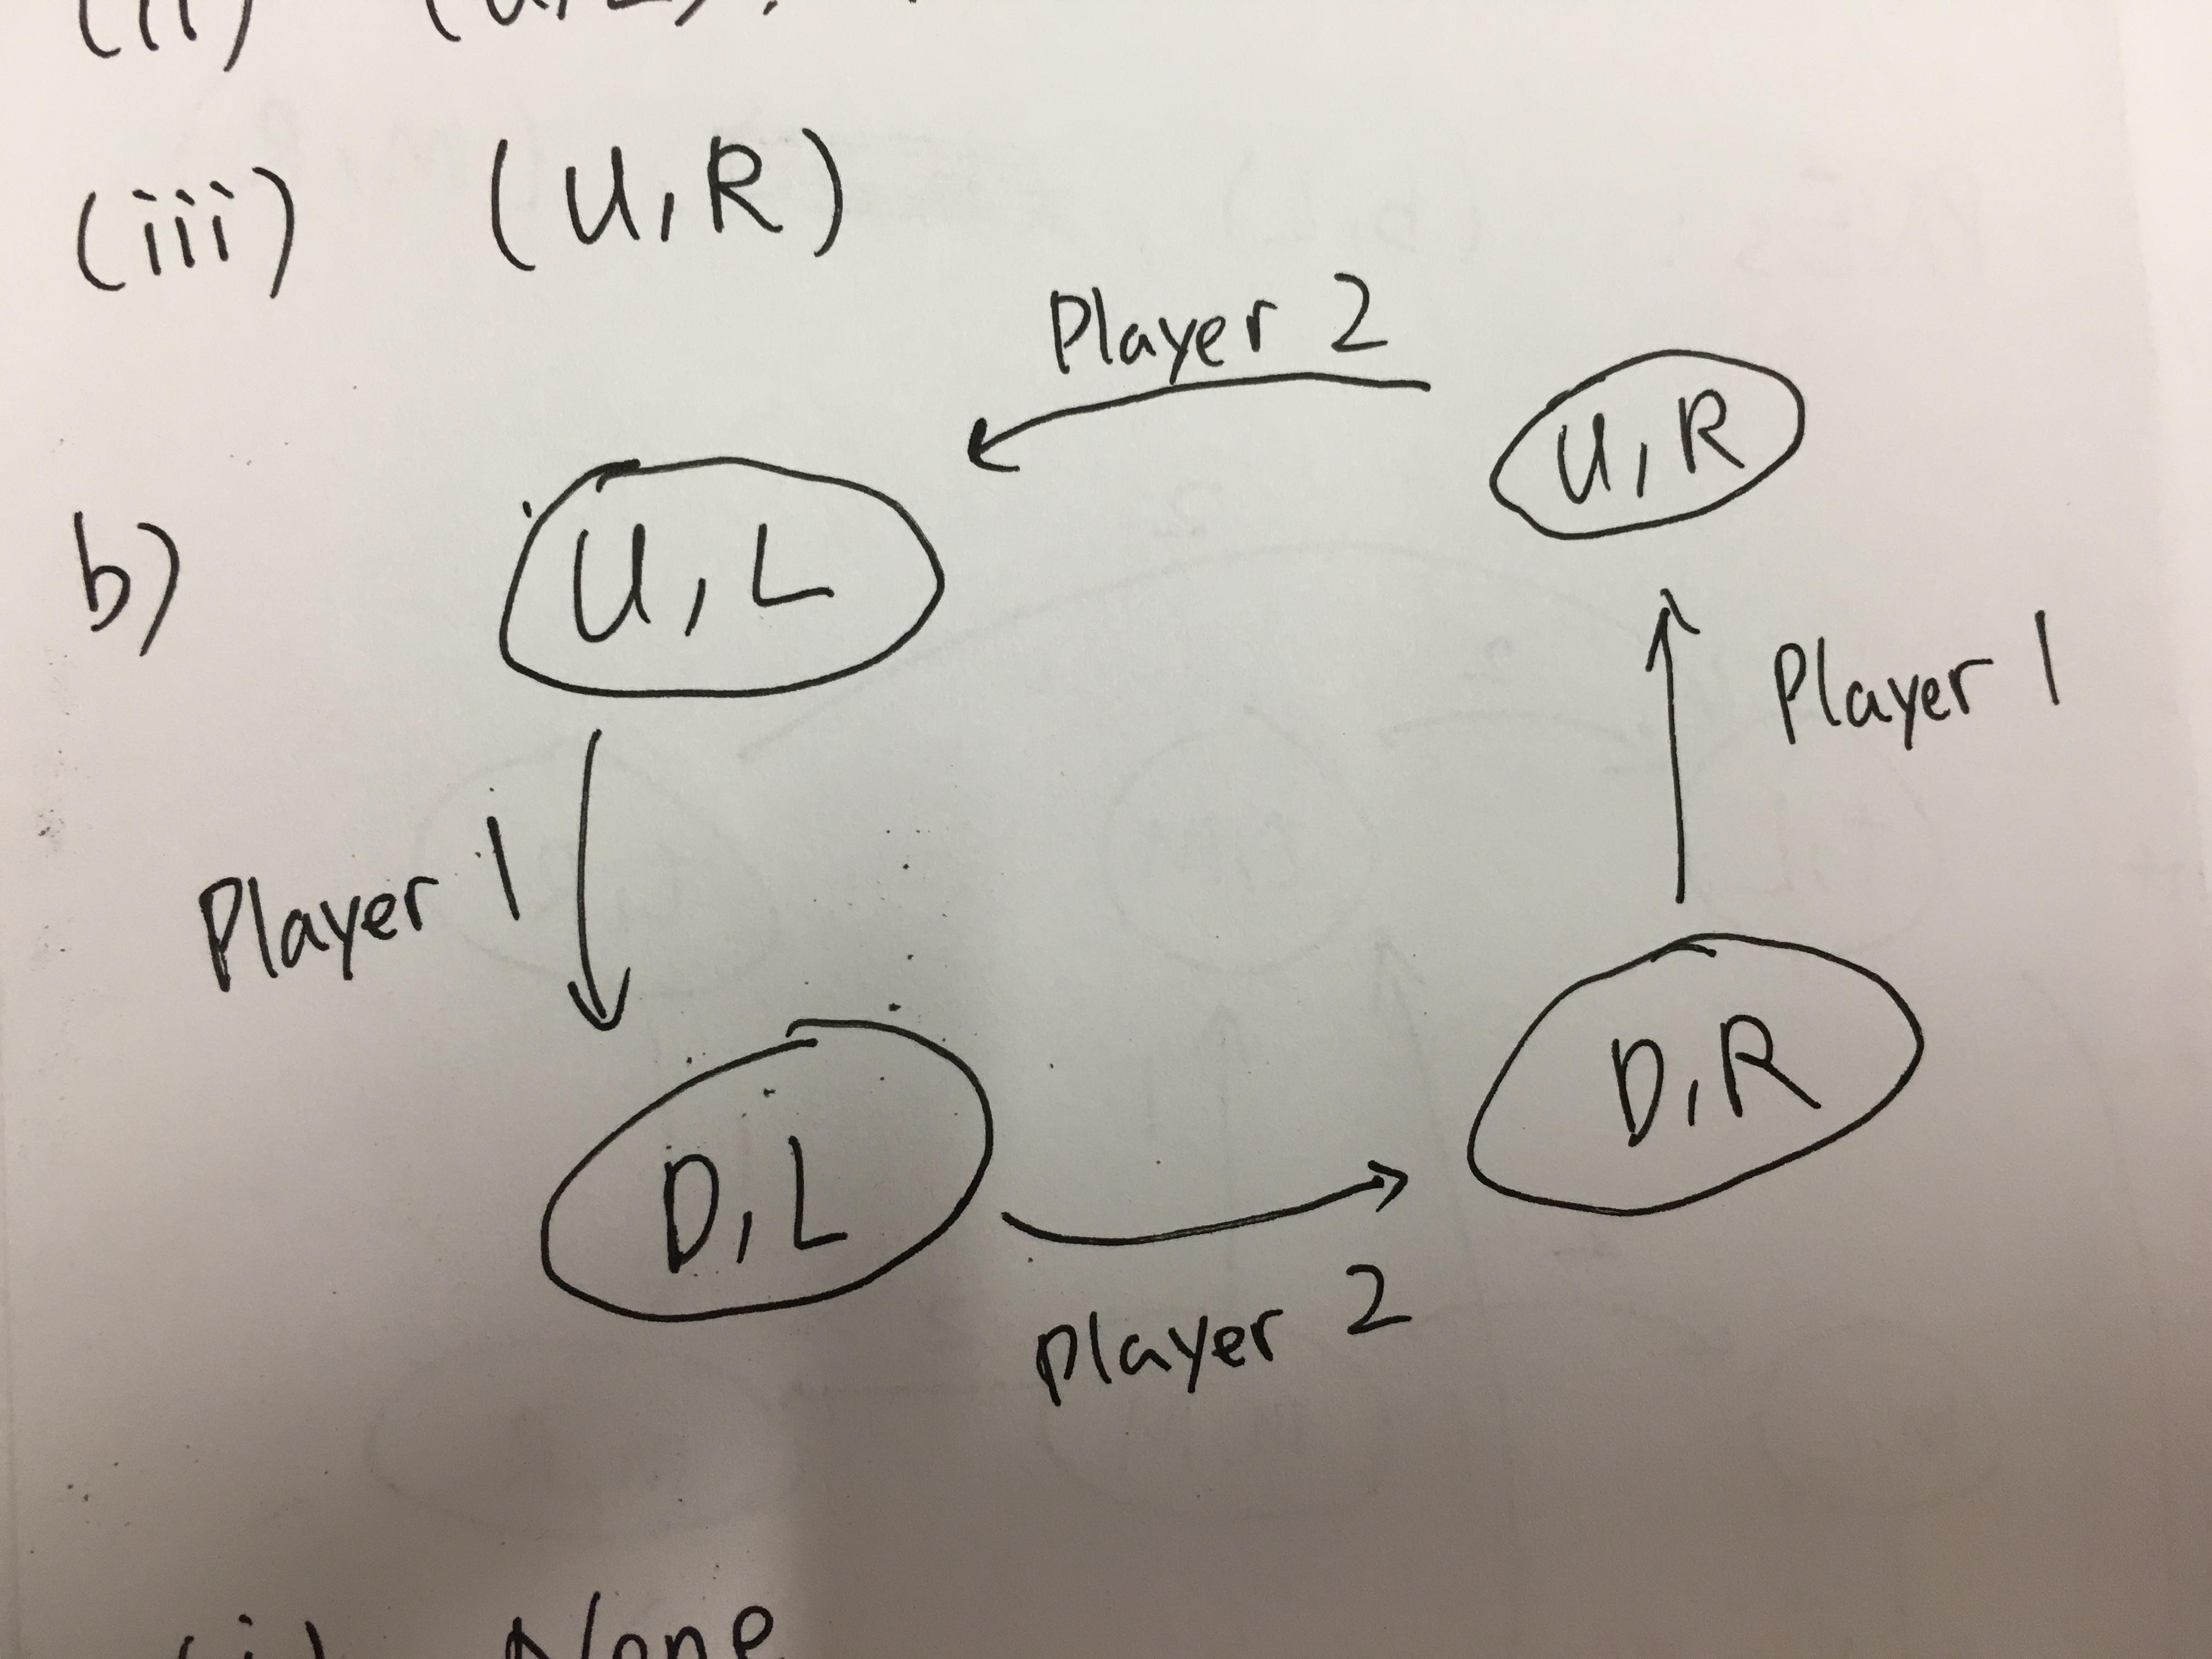 (ii)
(iii) (U,R)
Player 2
U,R
b) U,L
Player 1
Player 1
D,R
D,L
Player 2
(i) None